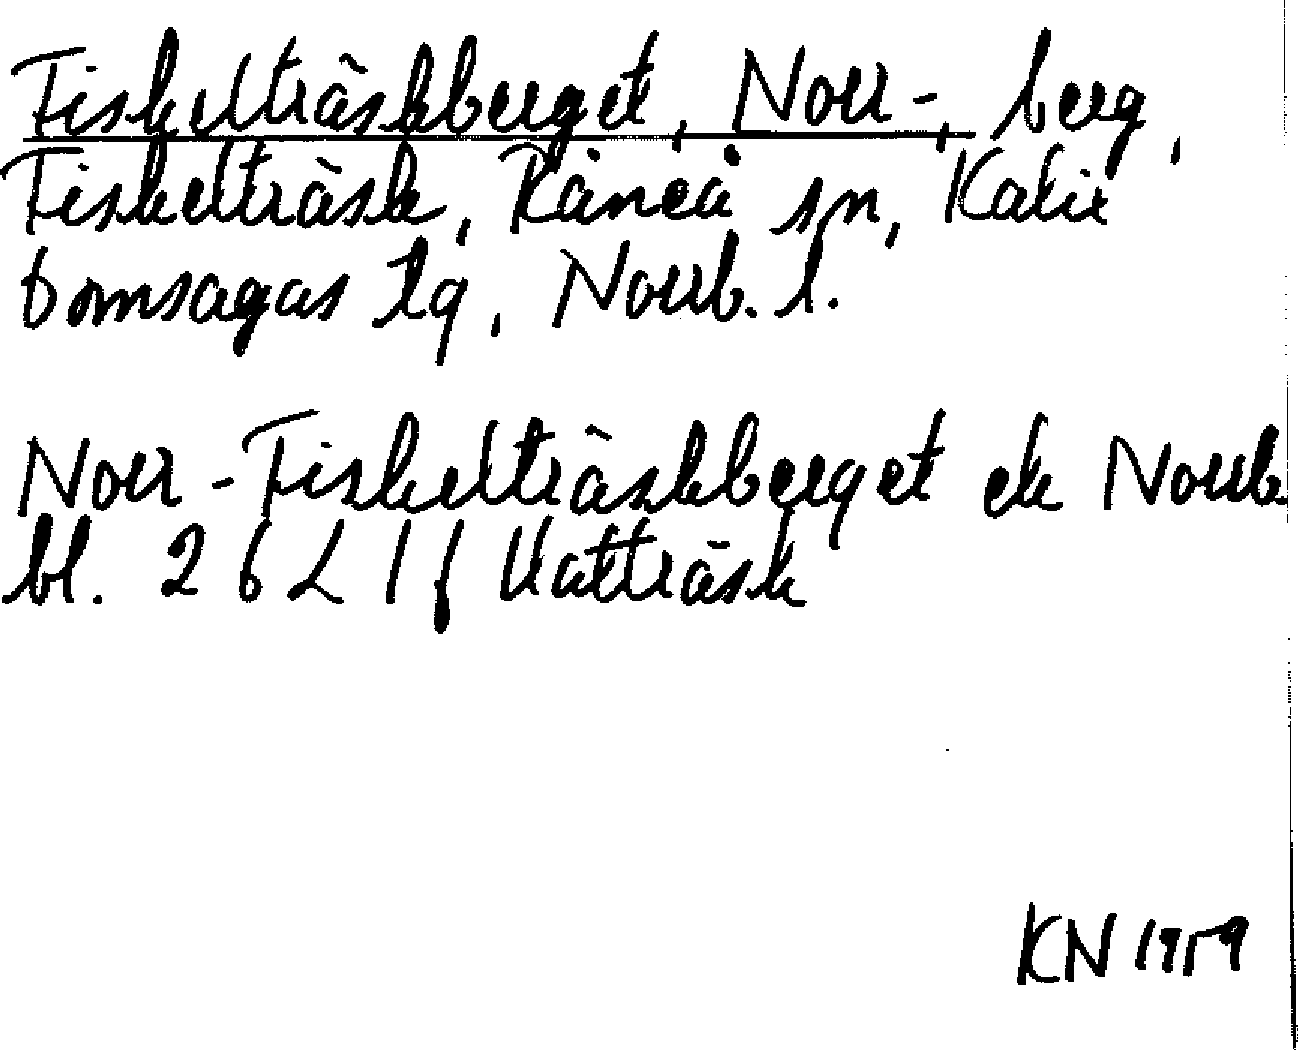 Fiskelträskberget, Norr-, berg,
Fiskelträsk, Råneå sn, Kalix
domsagas tg, Norrb. l.
Norr-Fiskelträskberget ek Norrb
bl. 26 L 1 f Vatträsk
KN 1959